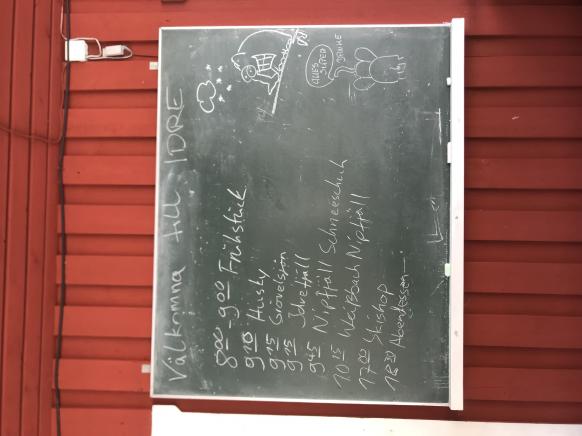 Välkomna till IDRE
800 - 9 00 Frühstück
9 10 Husky
9 15 Grövelsjön
9 15 Idrefjäll
9 45 Nipfjäll Schneeschuh
10 15 Weißbach Nipfjäll
17 00 Skishop
18 30 Abendessen
ALLES
SUPER
DANKE